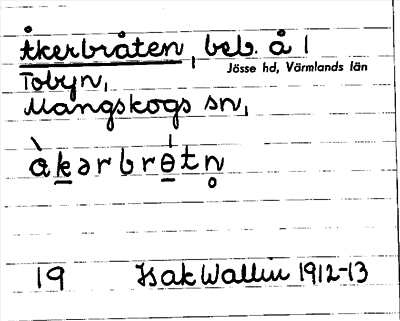 Åkerbråten, beb. å 1
Jösse hd, Värmlands län
Tobyn,
Mangskogs sn,
àk̲ərbrɵ̲̍tn̥
19 Isak Wallin 1912-13